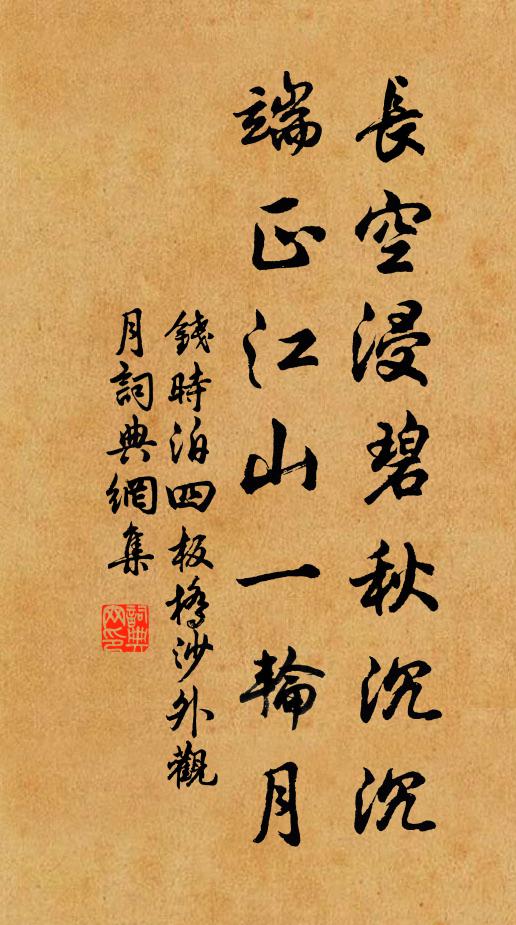 長空浸碧秋沉沉
端正江山一輪月
錢時泊四板橋沙外觀
月詞典網集
詞典網印